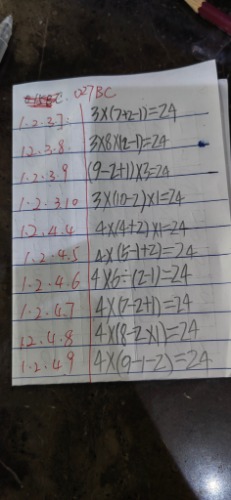 027BC
1.2.3.7 3×(7+2-1)=24
1.2.3.8 3×8×(2-1)=24
1.2.3.9 (9-2+1)×3=24
1.2.3.10 3×(10-2)×1=24
1.2.4.4 4×(4+2)×1=24
1.2.4.5 4×(5-1+2)=24
1.2.4.6 4×6÷(2-1)=24
1.2.4.7 4×(7-2+1)=24
1.2.4.8 4×(8-2×1)=24
1.2.4.9 4×(9-1-2)=24